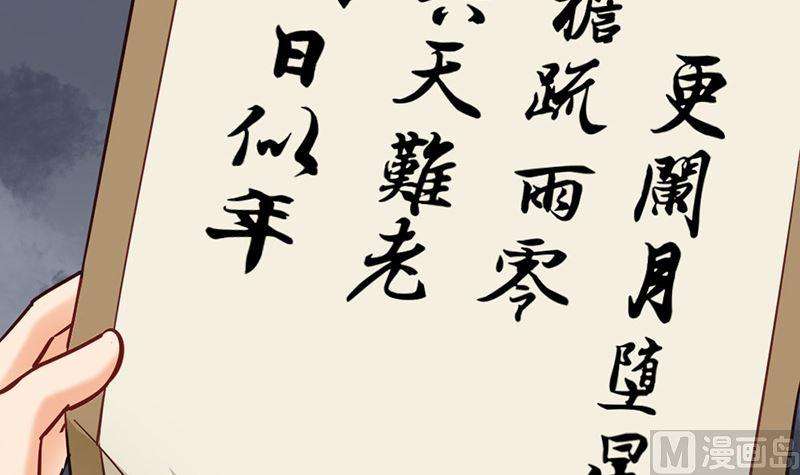 更闌月墮星
檐疏雨零
共天難老
日似年
漫画岛